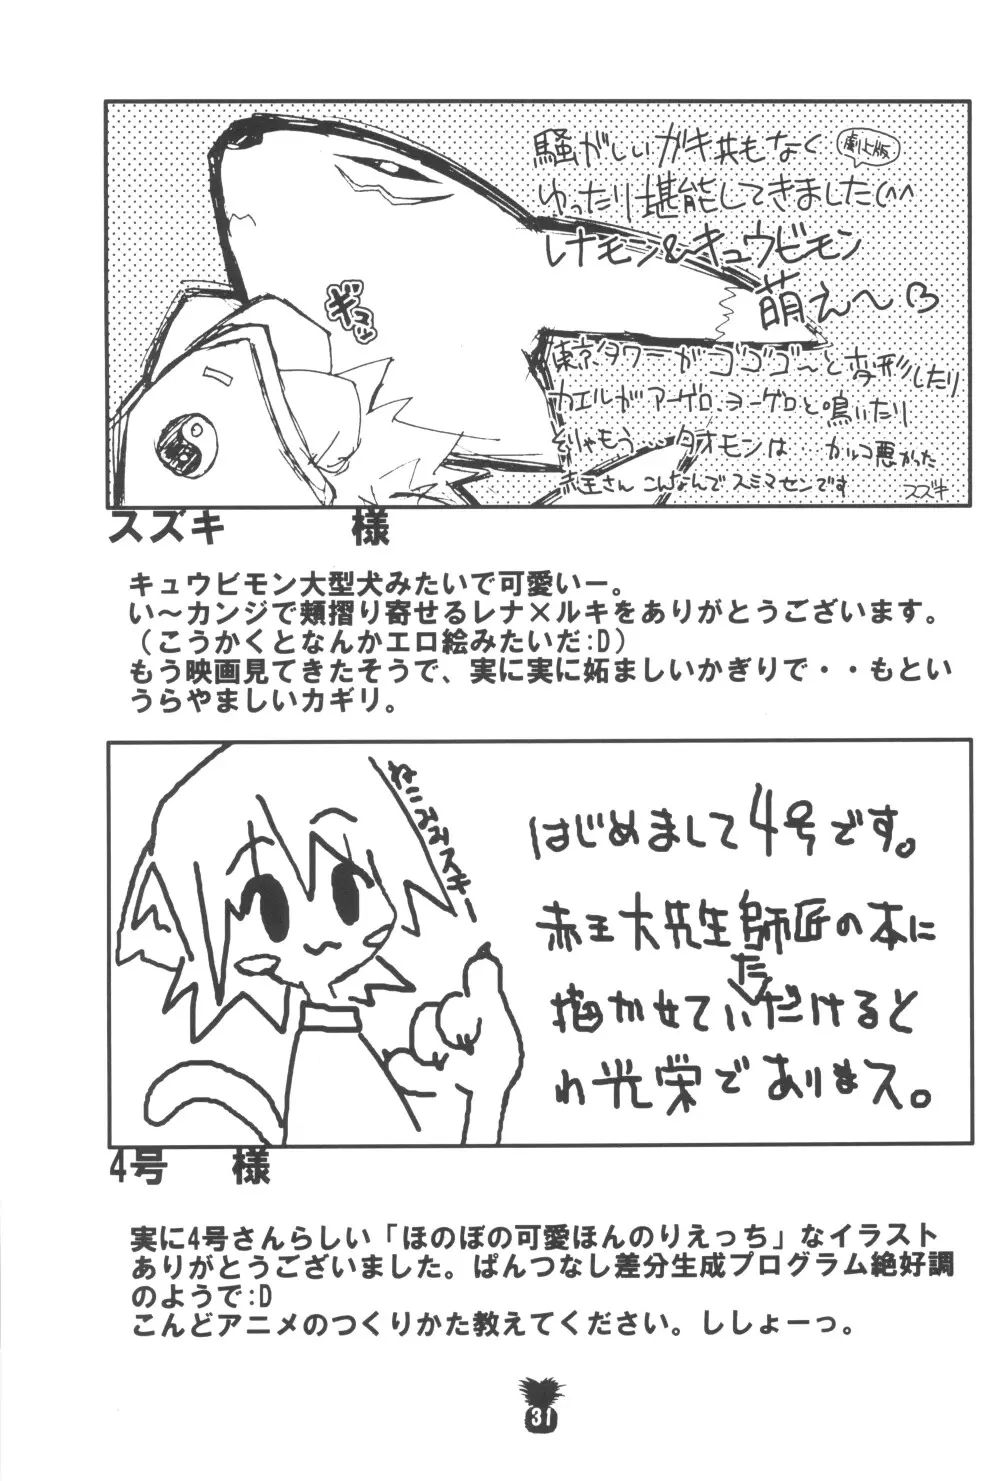 騒がしいガキ共もなく
劇上版
ゆったり堪能してきました(^^
レナモン&キュウビモン
萌え〜
ギュッ
東京タワーがゴゴゴ〜と変形したり
カエルがアーゲロ、ヨーゲロと鳴いたり
そりゃもう…タオモンは カッコ悪かった
赤王さん こんなんで スミマセンです
スズキ
スズキ 様
キュウビモン大型犬みたいで可愛いー。
い〜カンジで頬摺り寄せるレナ×ルキをありがとうございます。
(こうかくとなんかエロ絵みたいだ:D)
もう映画見てきたそうで、実に実に妬ましいかぎりで・・もとい
うらやましいカギリ。
ねこみみスキー
はじめまして4号です。
赤王大先生師匠の本に
描かせていただけると
わ光栄でありまス。
4号 様
実に4号さんらしい「ほのぼの可愛ほんのりえっち」なイラスト
ありがとうございました。ぱんつなし差分生成プログラム絶好調
のようで:D
こんどアニメのつくりかた教えてください。ししょーっ。
31